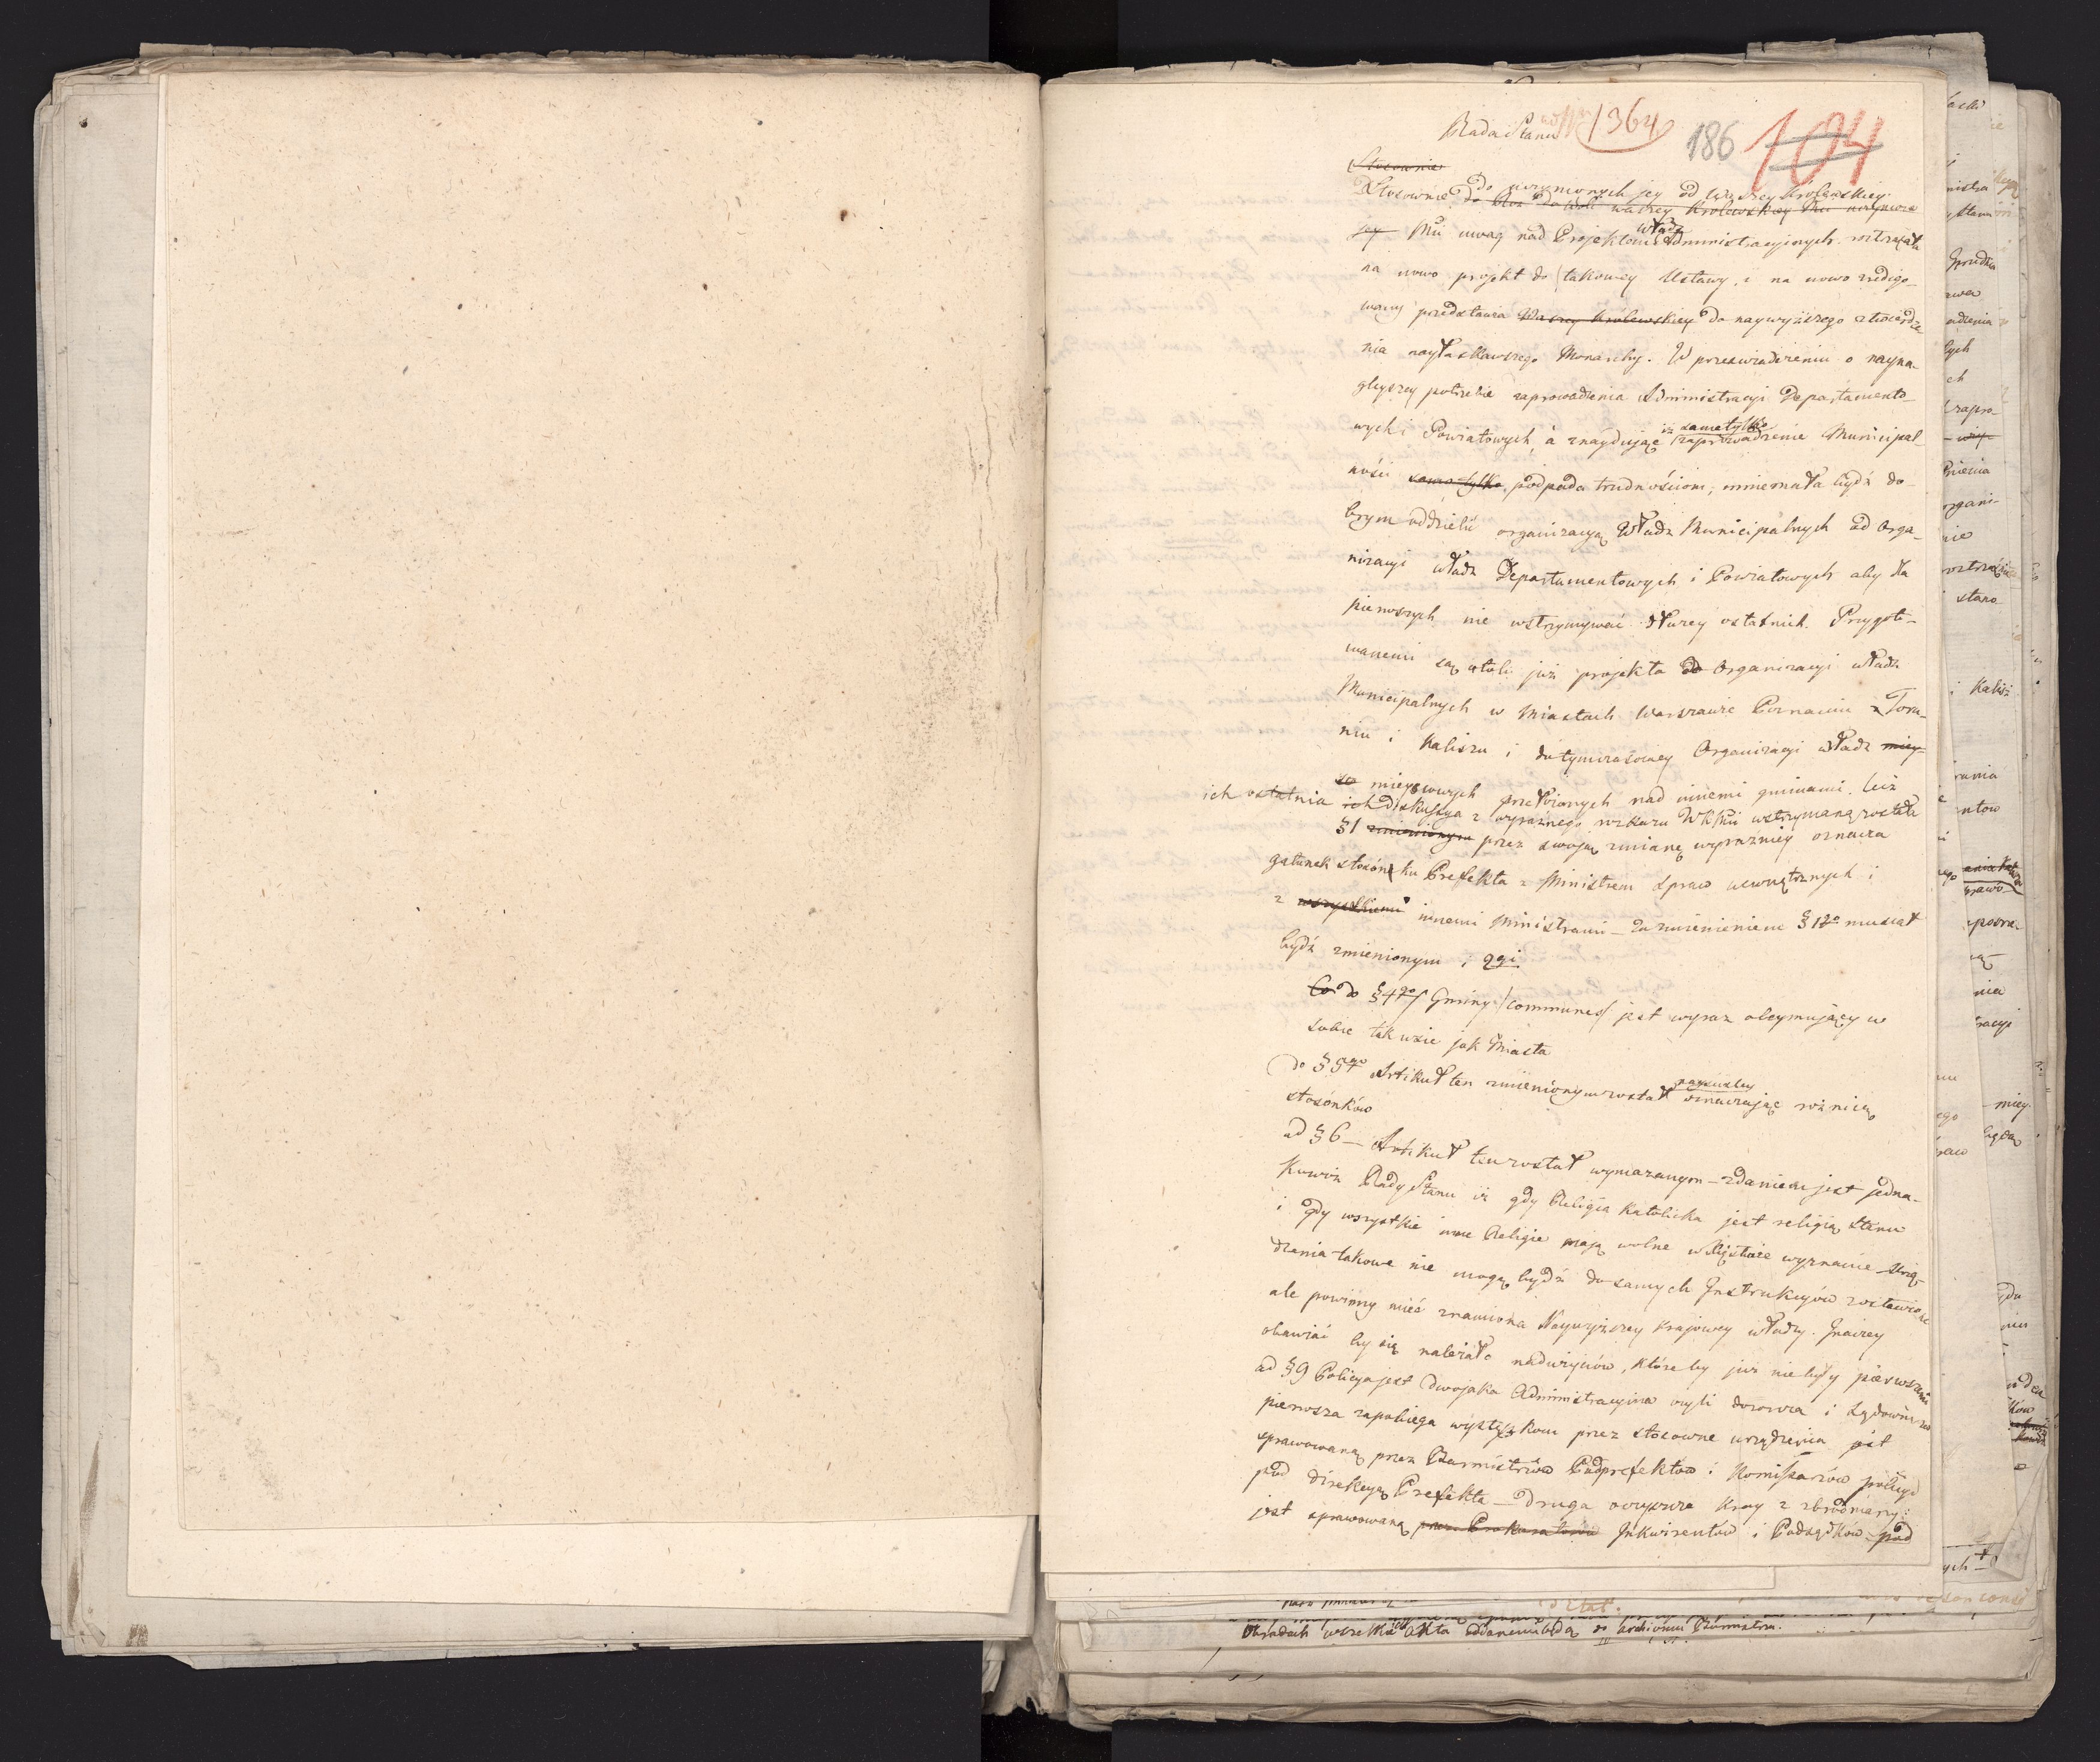 Rada Stanu
1364
186
104
Stosownie
Stosownie do uczynionych jey od Waszey Królewskiey
do woli Waszey Królewskiey Mci
Mci uwag nad Projektem Władz Administracyinych roztrząsała
na nowo projekt do takowey Ustawy, i na nowo zredigo-
wany przedstawia Waszey Królewskiey do naywyższego zatwierdze
nia nayłaskawszego Monarchy. W przeświadczeniu o nayna-
gleyszey potrzebie zaprowadzenia Administracyi Departamento-
wych i Powiatowych, a znayduiąc iż samo tylko zaprowadzenie Municipal-
ności samo tylko podpada trudnościom, mniemała bydź do-
brym oddzielić organizacyą Władz Municipalnych od Orga-
nizacyi władz Departamentowych i Powiatowych aby dla
pierwszych nie wstrzymywać dłużey ostatnich. Przygoto-
wanemi są atoli już projekta do Organizacyi władz
Municipalnych w Miastach Warszawie Poznaniu Toru-
niu i Kaliszu i do tymczasowey Organizacyi władz miey-
sc mieyscowych przełożonych nad innemi gminami. Lecz
ich ostatnia ich diskussya z wyraźnego rozkazu WKMci wstrzymaną została
§1 zmienionym przez swoją zmianę wyraźniey oznacza
gatunek stosónku Prefekta z Ministrem spraw wewnętrznych i
z wszystkiemi innemi Ministrami – Za zmienieniem §1go musiał
bydź zmienionym i 2gi
Co do §4go Gminy /communes/ jest wyraz obeymujący w
sobie tak wsie jak Miasta
do §5go Artikuł ten zmienionym został oznaczając różnicę
stosónków
ad §6 – Artikuł ten został wymazanym – zdaniem jest jedna-
kowoż Rady Stanu iż gdy Religia Katolicka jest religią stanu
i gdy wszystkie inne Religie mają wolne w Xięstwie wyznanie urzą-
dzenia takowe nie mogą bydź do samych Instrukcyów zostawione
ale powinny mieć znamiona Naywyższey krajowey władzy. Inaczey
obawiać by się należało nadużyciów, które by już nie były pierwszemi
ad §9 Policya jest dwojaka Administracyina czyli dozorcza i Sądownicza
pierwsza zapobiega występkom przez stosowne urządzenia jest
sprawowaną przez Burmistrzów Podprefektów i Komissarzów policyi
pod direkcyą Prefekta – druga oczyszcza kray z zbrodniarzy:
jest sprawowaną przez Prokuratorów Inkwirentów i Podsędków pod